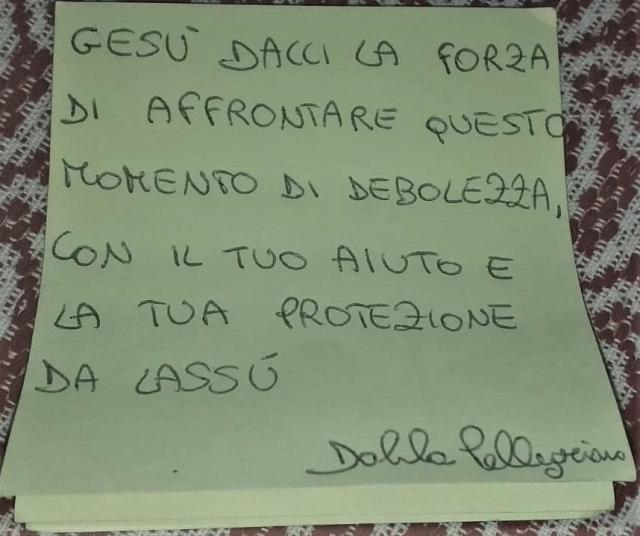 GESÙ DACCI LA FORZA
DI AFFRONTARE QUESTO
MOMENTO DI DEBOLEZZA,
CON IL TUO AIUTO E
LA TUA PROTEZIONE
DA LASSÚ
Dalila Pellegriano